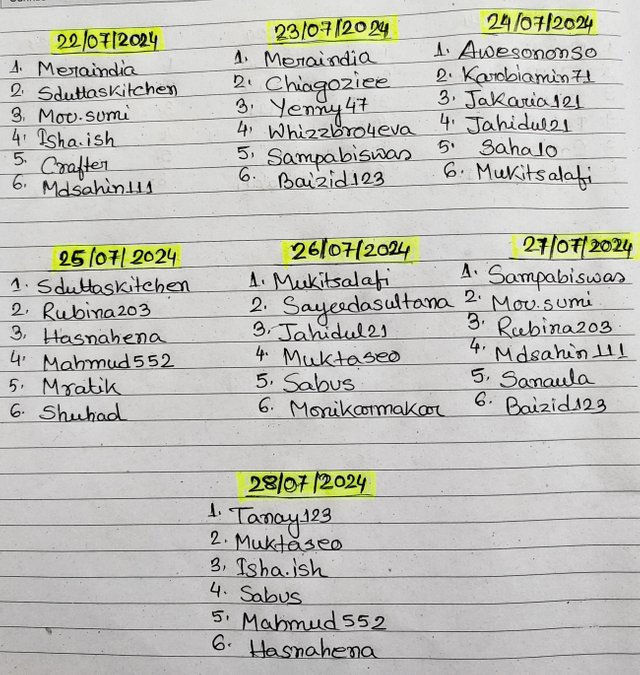 22/07/2024
1. Meraindia
2. Sduttaskitchen
3. Mou.sumi
4. Isha.ish
5. Crafter
6. Mdsahin111
23/07/2024
1. Meraindia
2. Chiagoziee
3. Yenny47
4. Whizzbro4eva
5. Sampabiswas
6. Baizid123
24/07/2024
1. Awesononso
2. Karobiamin71
3. Jakaria121
4. Jahidul21
5. Saha10
6. Mukitsalafi
25/07/2024
1. Sduttaskitchen
2. Rubina203
3. Hasnahena
4. Mahmud552
5. Mratik
6. Shuhad
26/07/2024
1. Mukitsalafi
2. Sayeedasultana
3. Jahidul21
4. Muktaseo
5. Sabus
6. Monikarmakar
27/07/2024
1. Sampabiswas
2. Mou.sumi
3. Rubina203
4. Mdsahin111
5. Sanaula
6. Baizid123
28/07/2024
1. Tanay123
2. Muktaseo
3. Isha.ish
4. Sabus
5. Mahmud552
6. Hasnahena